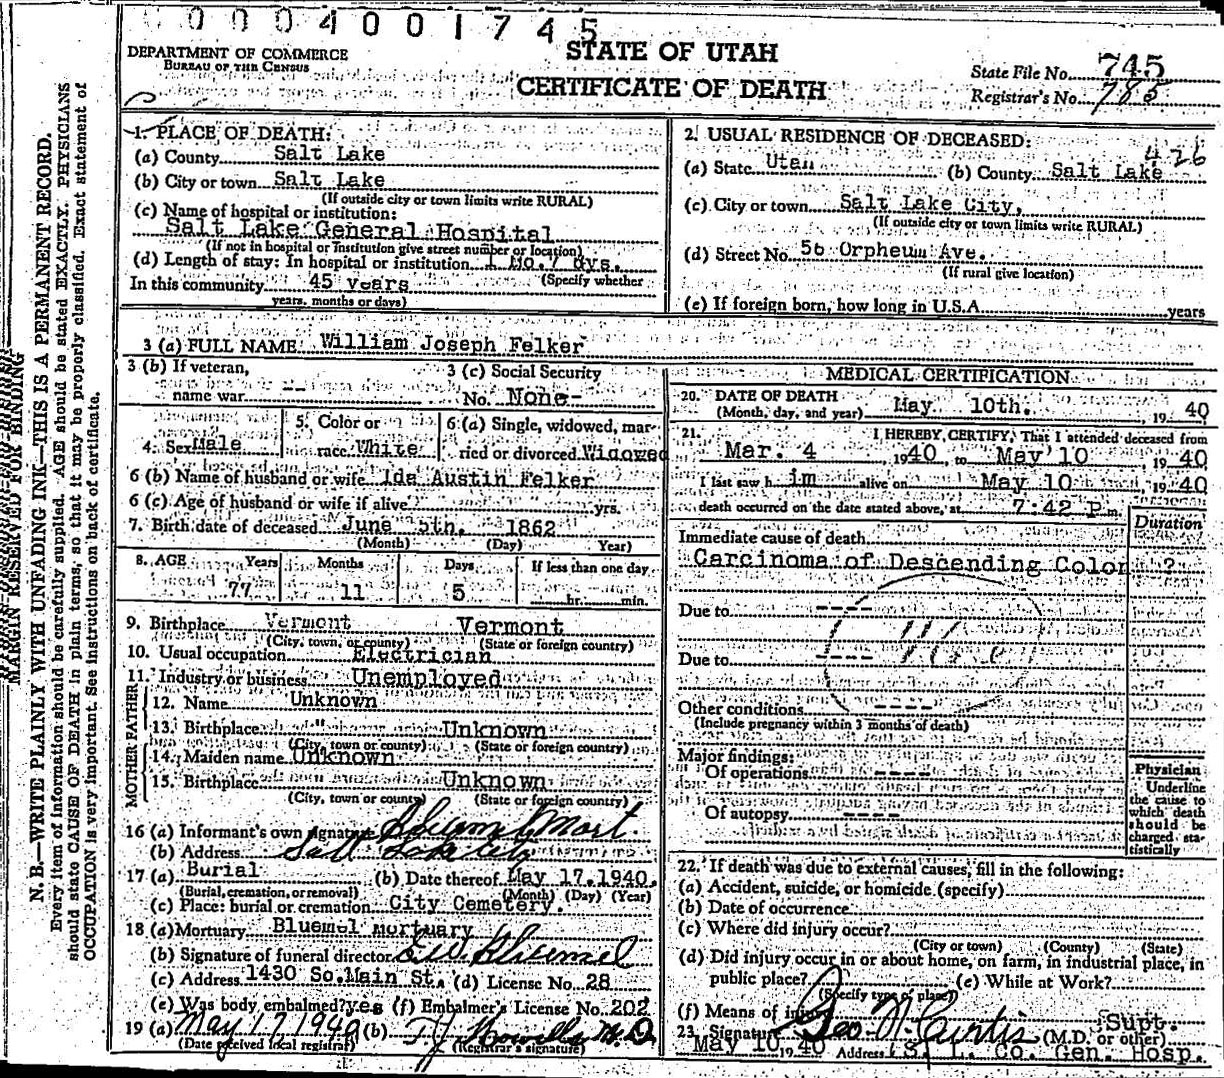 0004001745
DEPARTMENT OF COMMERCE
BUREAU OF THE CENSUS
STATE OF UTAH
CERTIFICATE OF DEATH
State File No. 745
Registrar's No. 785
N. B.—WRITE PLAINLY WITH UNFADING INK—THIS IS A PERMANENT RECORD.
MARGIN RESERVED FOR BINDING
Every item of information should be carefully supplied. AGE should be stated EXACTLY. PHYSICIANS
should state CAUSE OF DEATH in plain terms, so that it may be properly classified. Exact statement of
OCCUPATION is very important. See instructions on back of certificate.
1. PLACE OF DEATH:
(a) County Salt Lake
(b) City or town Salt Lake
(If outside city or town limits write RURAL)
(c) Name of hospital or institution:
Salt Lake General Hospital
(If not in hospital or institution give street number or location)
(d) Length of stay: In hospital or institution Mo. 7 dys.
(Specify whether
In this community 45 years
years, months or days)
2. USUAL RESIDENCE OF DECEASED:
426
(a) State Utah (b) County Salt Lake
(c) City or town Salt Lake City,
(If outside city or town limits write RURAL)
(d) Street No. 56 Orpheum Ave.
(If rural give location)
(e) If foreign born, how long in U.S.A. years
3 (a) FULL NAME William Joseph Felker
3 (b) If veteran,
name war --
3 (c) Social Security
No. None-
4. Sex Male
5. Color or
race White
6 (a) Single, widowed, mar-
ried or divorced Widowed
6 (b) Name of husband or wife Ida Austin Felker
6 (c) Age of husband or wife if alive yrs.
7. Birth date of deceased June 5th. 1862
(Month) (Day) Year)
8. AGE Years Months Days If less than one day
77 11 5 hr. min.
9. Birthplace Vermont Vermont
(City, town, or county) (State or foreign country)
10. Usual occupation Electrician
11. Industry or business Unemployed
FATHER
12. Name Unknown
13. Birthplace " Unknown
(City, town or county) (State or foreign country)
MOTHER
14. Maiden name Unknown
15. Birthplace Unknown
(City, town or county) (State or foreign country)
16 (a) Informant's own signature Mort.
(b) Address Salt Lake City
17 (a) Burial (b) Date thereof May 17.1940.
(Burial, cremation, or removal) (Month) (Day) (Year)
(c) Place: burial or cremation City Cemetery.
18 (a) Mortuary Bluemel mortuary
(b) Signature of funeral director Bluemel
(c) Address 1430 So.Main St. (d) License No. 28
(e) Was body embalmed? yes (f) Embalmer's License No. 202
19 (a) May 17 1940 (b) Howells M.D.
(Date received local registrar) (Registrar's signature)
MEDICAL CERTIFICATION
20. DATE OF DEATH
(Month, day, and year) May 10th. 19 40
21. I HEREBY CERTIFY, That I attended deceased from
Mar. 4 1940 to May 10 19 40
I last saw h im alive on May 10 19 40
death occurred on the date stated above, at 7:42 P m.
Duration
Immediate cause of death
Carcinoma of Descending Colon ?
Due to ----
Due to ----
Other conditions ----
(Include pregnancy within 3 months of death)
Major findings:
Of operations ----
Of autopsy ----
Physician
Underline
the cause to
which death
should be
charged sta-
tistically
22. If death was due to external causes, fill in the following:
(a) Accident, suicide, or homicide (specify)
(b) Date of occurrence
(c) Where did injury occur?
(City or town) (County) (State)
(d) Did injury occur in or about home, on farm, in industrial place, in
public place? (e) While at Work?
(Specify type of place)
(f) Means of injury
23. Signature Geo N. Curtis Supt.
(M.D. or other)
May 10 19 40 Address S. L. Co. Gen. Hosp.